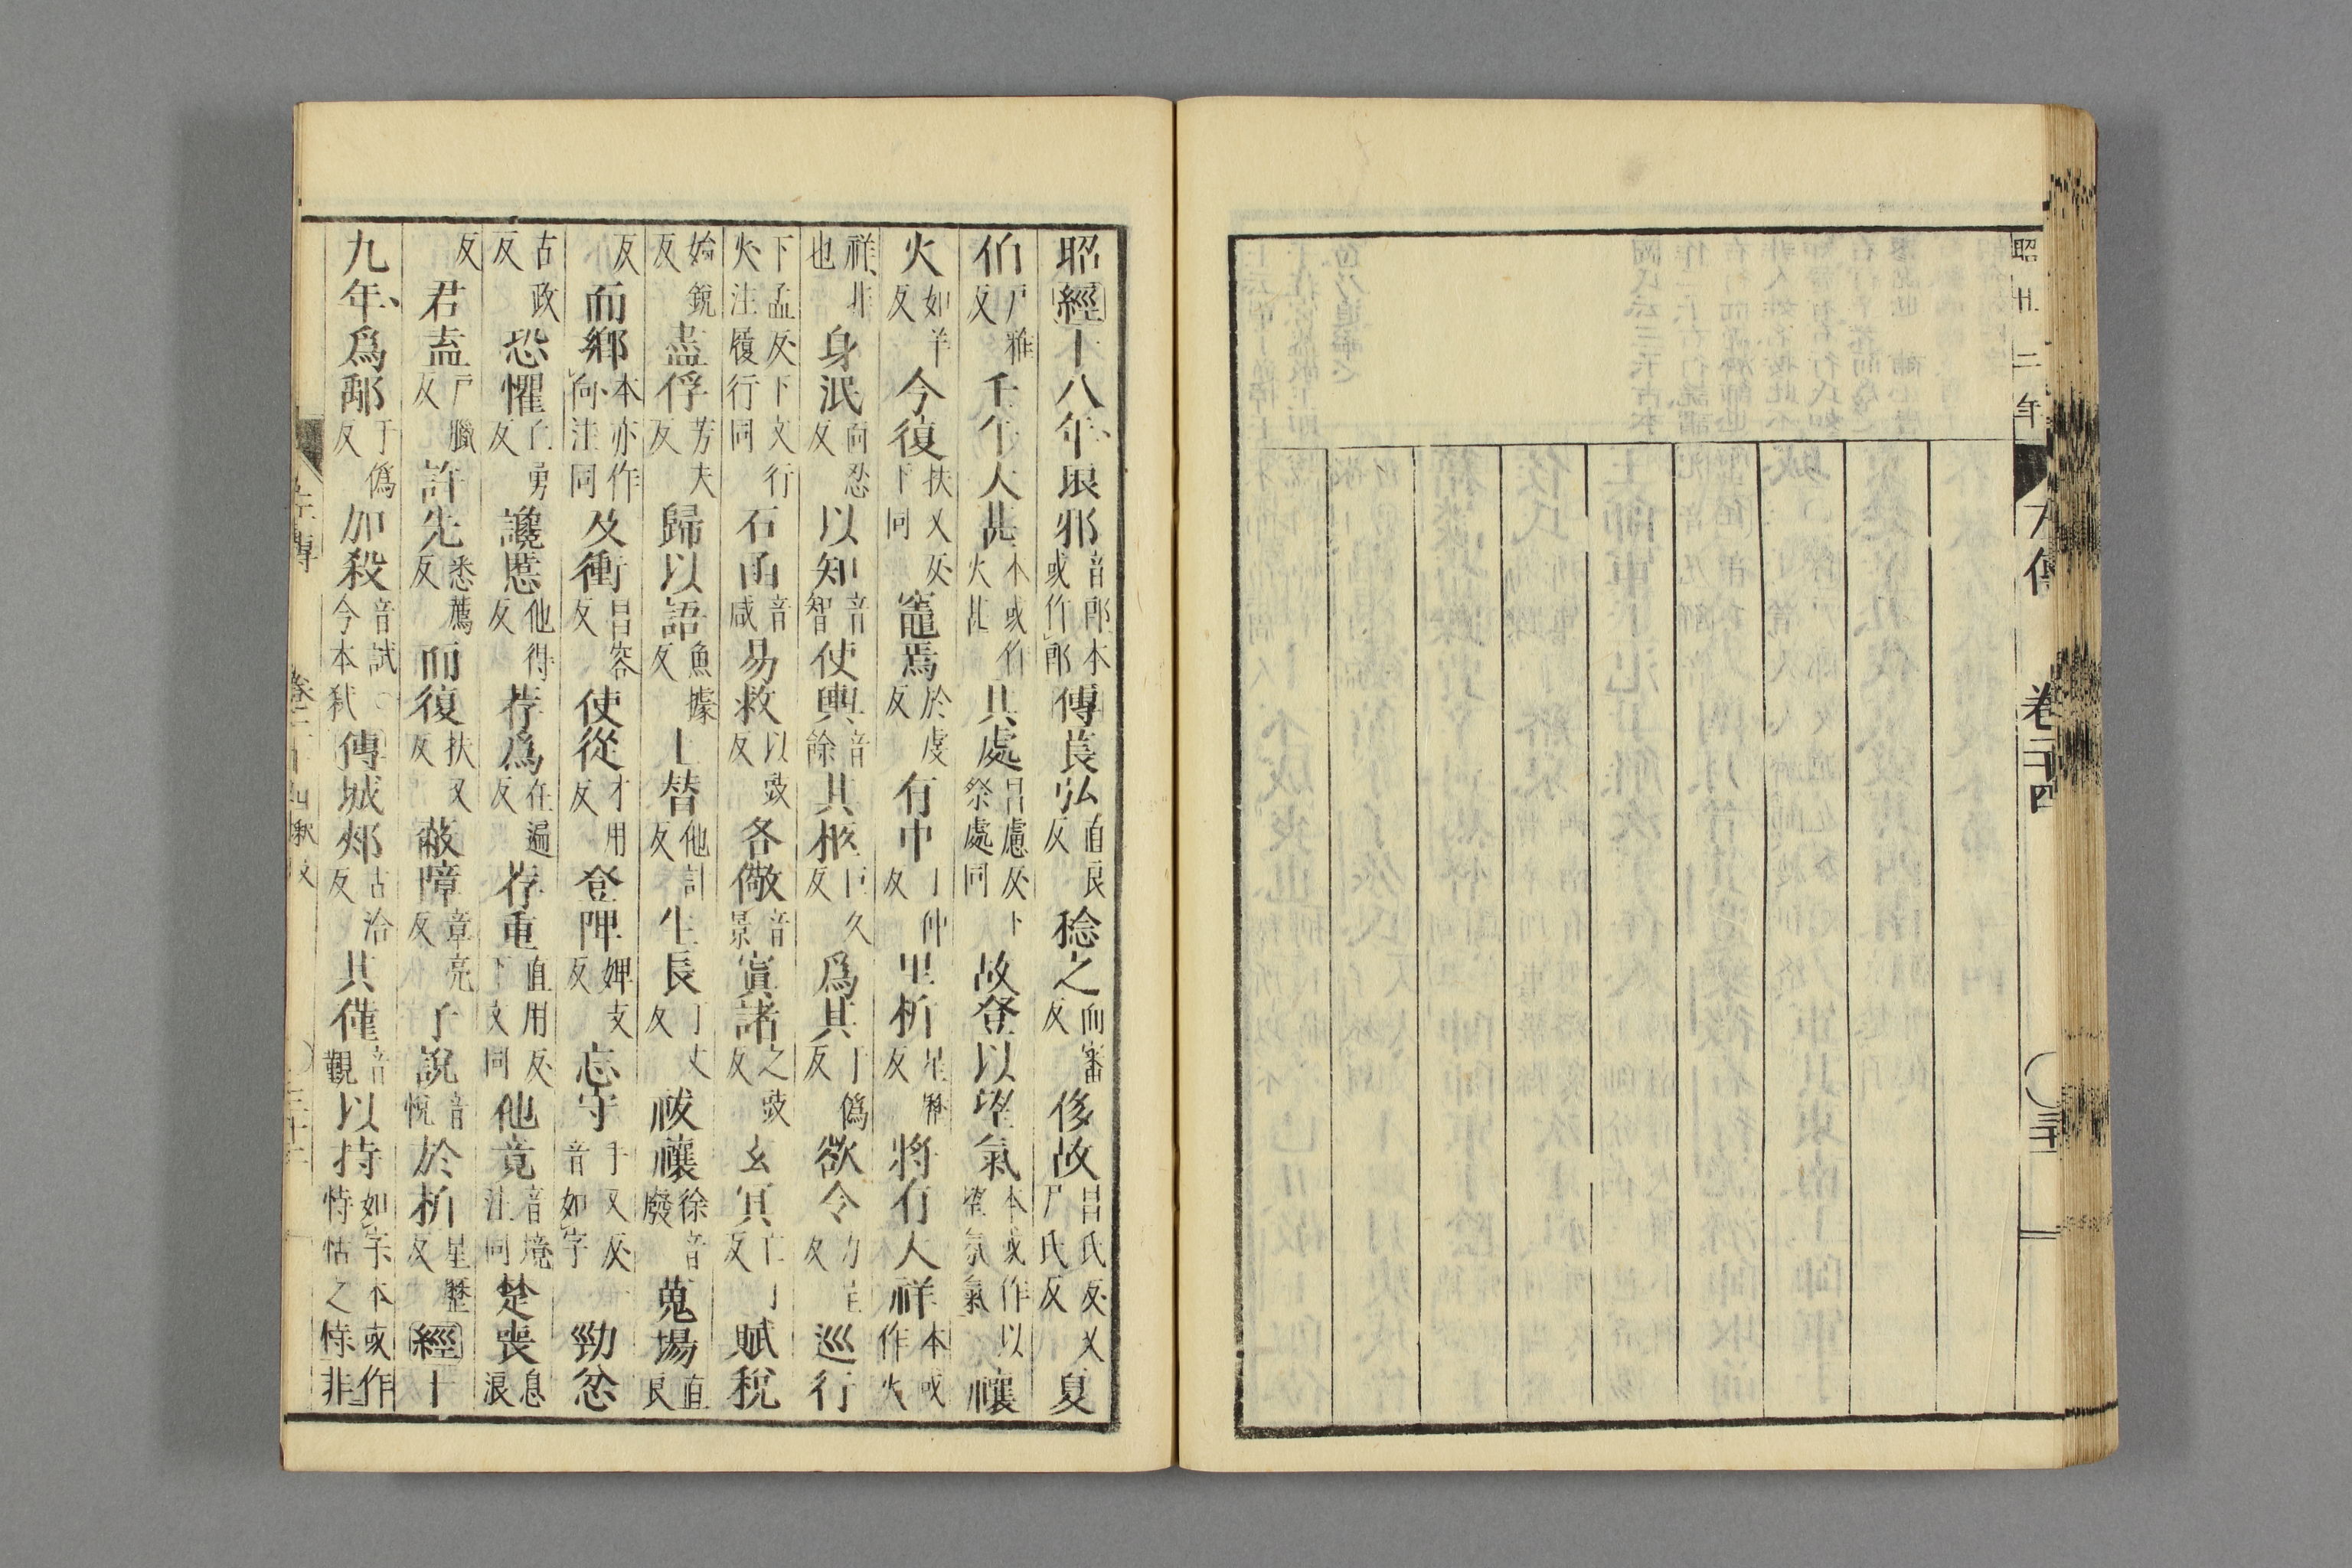 昭廿二年 左傳 卷二十四
昭經十八年琅邪音郎本或作郎傳萇弘直良反稔之而審反侈故昌氏反又尸氏反夏
伯戶雅反壬午大甚本或作火甚其處昌慮反下祭處同故登以望氣本或作以望氛氣禳
火如羊反今復扶又反下同竈焉於虔反有中丁仲反里析星歷反將有大祥本或作火
祥非也身泯面忍反以知音智使輿音餘其柩巨久反爲其于僞反欲令力呈反巡行
下孟反下文行火注履行同石函音咸易救以豉反各儆音景寘諸之豉反玄冥亡丁反賦稅
始銳反盡俘芳夫反歸以語魚據反上替他計反生長丁丈反祓禳徐音廢蒐場直良
反而鄉本亦作向注同及衝昌容反使從才用反登陴婢支反忘守手又反音如字勁忿
古政反恐懼丘勇反讒慝他得反荐爲在遍反荐重直用反下文同他竟音境注同楚喪息浪
反君盍戶臘反許先悉薦反而復扶又反蔽障章亮反子說音悅於析星歷反經十
九年爲鄅于僞反加殺音試○今本弒傳城郟古洽反其僅音覲以持如字本或作恃怙之恃非
左傳 卷二十四